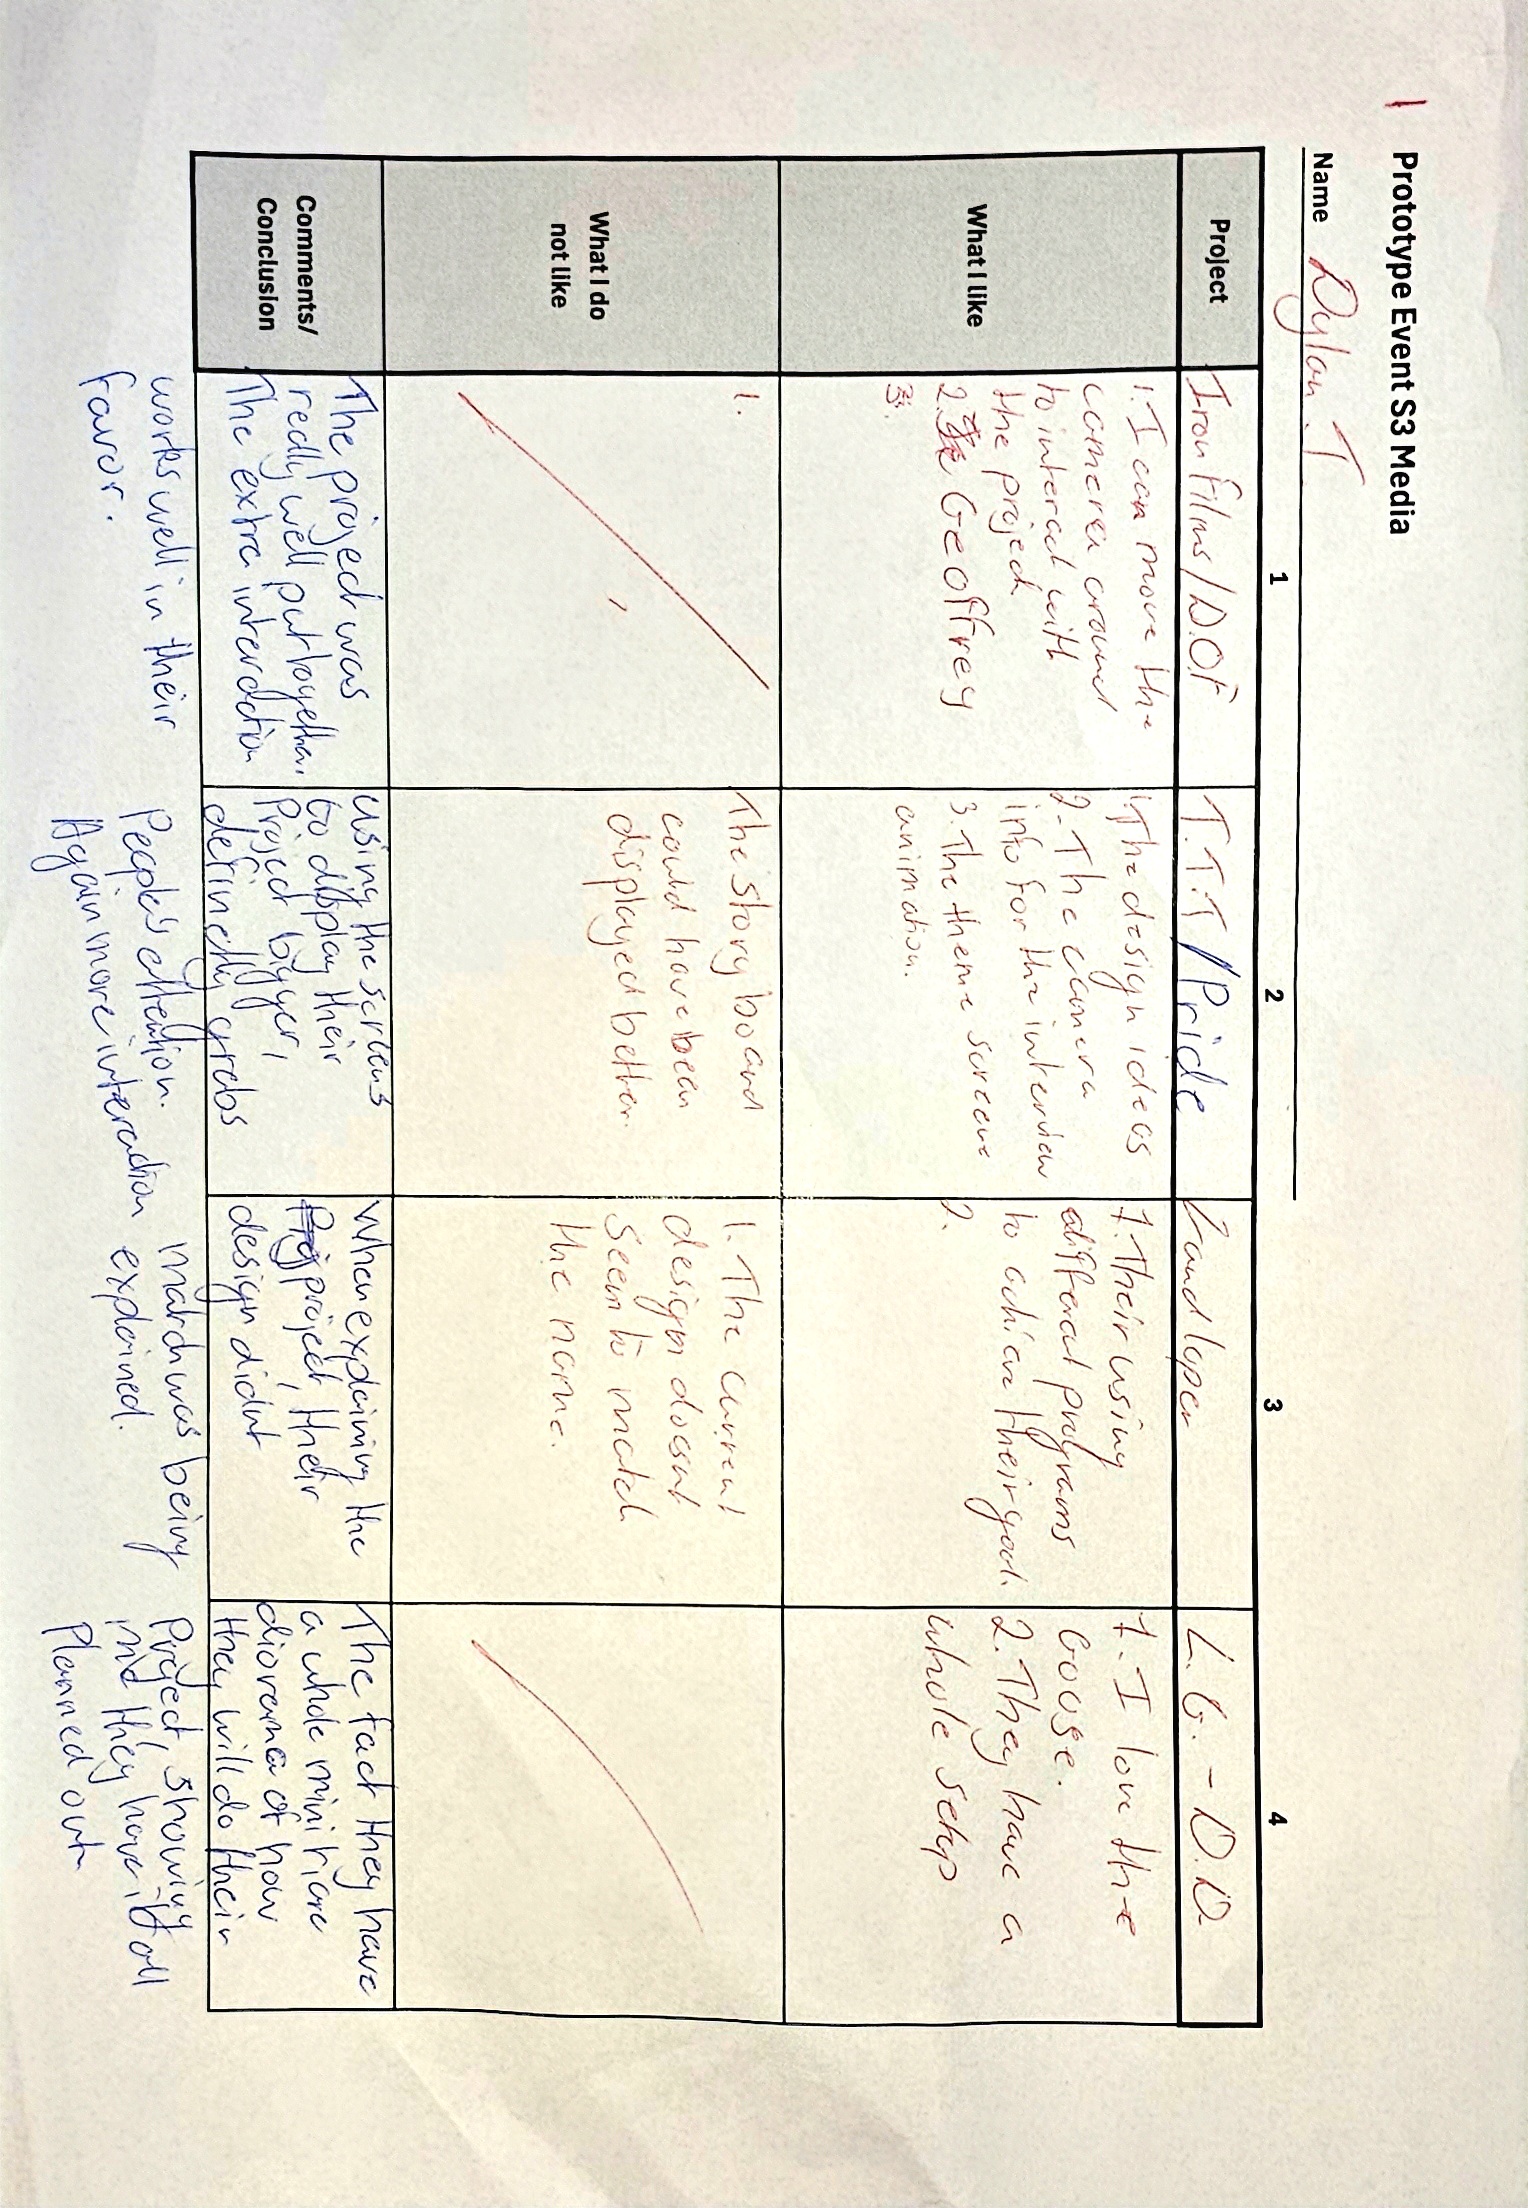 1
Prototype Event S3 Media
Name Dylan.T
1
2
3
4
Project
Iron Films/D.OF
T.T.T/Pride
Landloper
L.G.-D.D
What I like
1. I can move the
camera around
to interact with
the project
2. Geoffrey
3.
1. The design ideas
2. The camera
info for the interview
3. The theme screen
animation.
1. Their using
different programs
to achive their goal.
2.
1. I love the
Goose.
2. They have a
whole setup
What I do
not like
1.
The story board
could have been
displayed better.
1. The current
design doesnt
seem to match
the name.
Comments/
Conclusion
The project was
really well put together.
The extra interaction
works well in their
favor.
using the screens
to display their
Project bigger,
definetly grabs
People's attention.
Again more interaction
when explaining the
project, their
design didnt
match was being
explained.
The fact they have
a whole miniture
diorama of how
they will do their
Project, showing
they have it all
Planned out